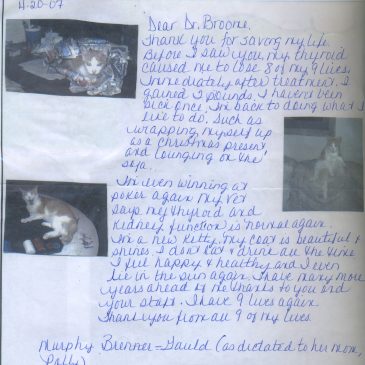 4-20-07
Dear Dr. Broome,
Thank you for saving my life.
Before I saw you, my thyroid
caused me to lose 8 of my 9 lives.
Immediately after treatment I
gained 3 pounds. I haven't been
sick once. I'm back to doing what I
like to do. Such as
wrapping myself up
as a christmas present
and lounging on the
sofa.
I'm even winning at
poker again. My vet
says my thyroid and
kidney function is normal again.
I'm a new kitty. My coat is beautiful &
shines. I don't eat & drink all the time.
I feel happy & healthy and I even
lie in the sun again. I have many more
years ahead of me thanks to you and
your staff. I have 9 lives again.
Thank you from all 9 of my lives.
Murphy Brenner-Gauld (as dictated to her mom,
Patty)